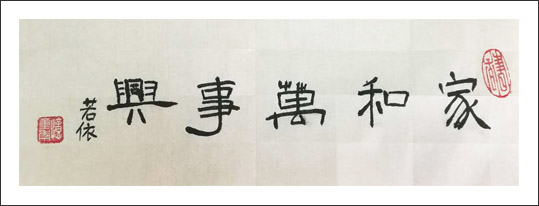 家和萬事興
若依